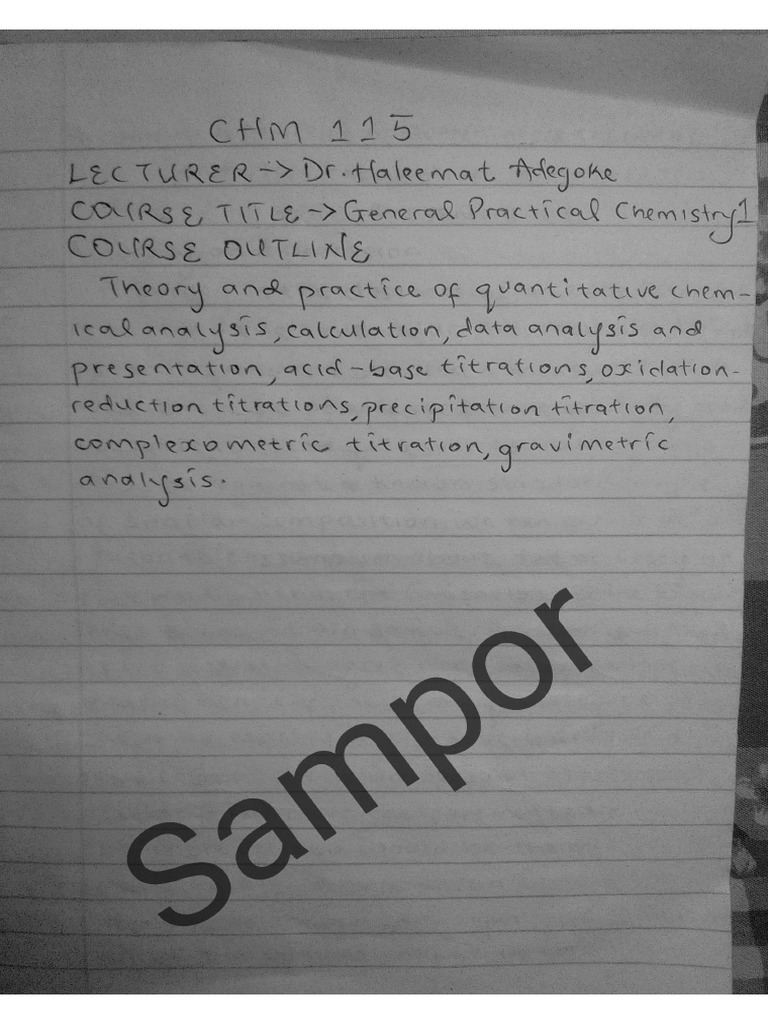 CHM 115
LECTURER -> Dr. Haleemat Adegoke
COURSE TITLE -> General Practical Chemistry 1
COURSE OUTLINE
Theory and practice of quantitative chem-
ical analysis, calculation, data analysis and
presentation, acid-base titrations, oxidation-
reduction titrations, precipitation titration,
complexometric titration, gravimetric
analysis.
Sampor